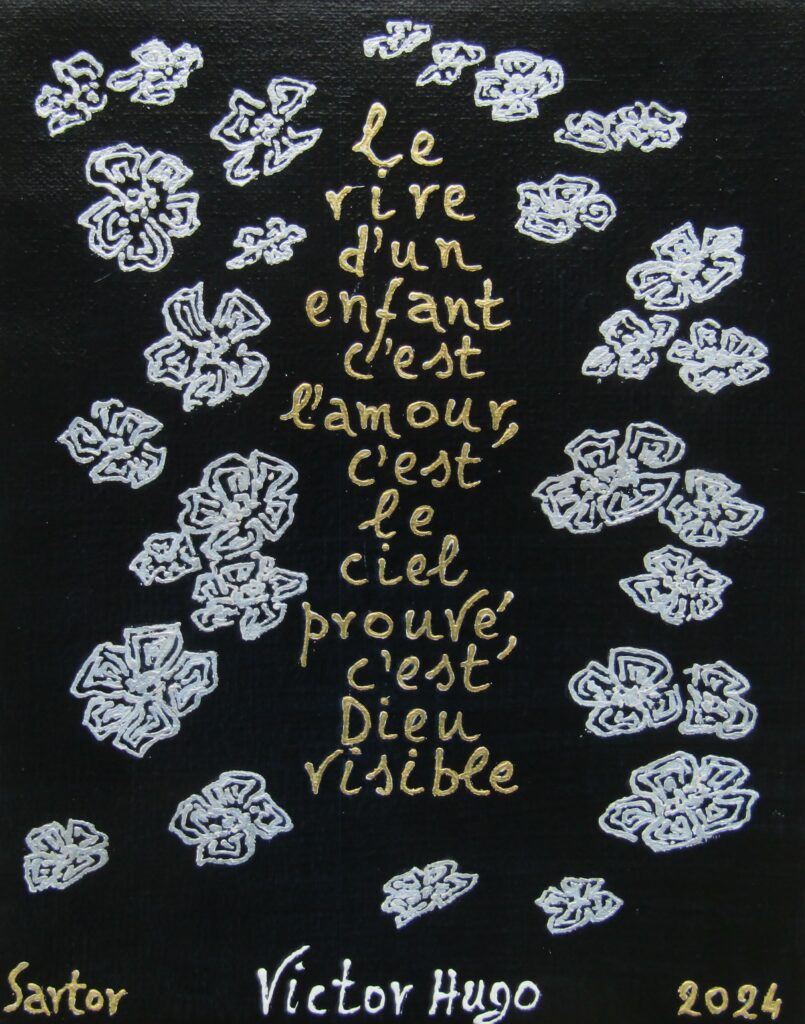 Le
rire
d'un
enfant
c'est
l'amour,
c'est
le
ciel
prouvé,
c'est
Dieu
visible
Sartor Victor Hugo 2024